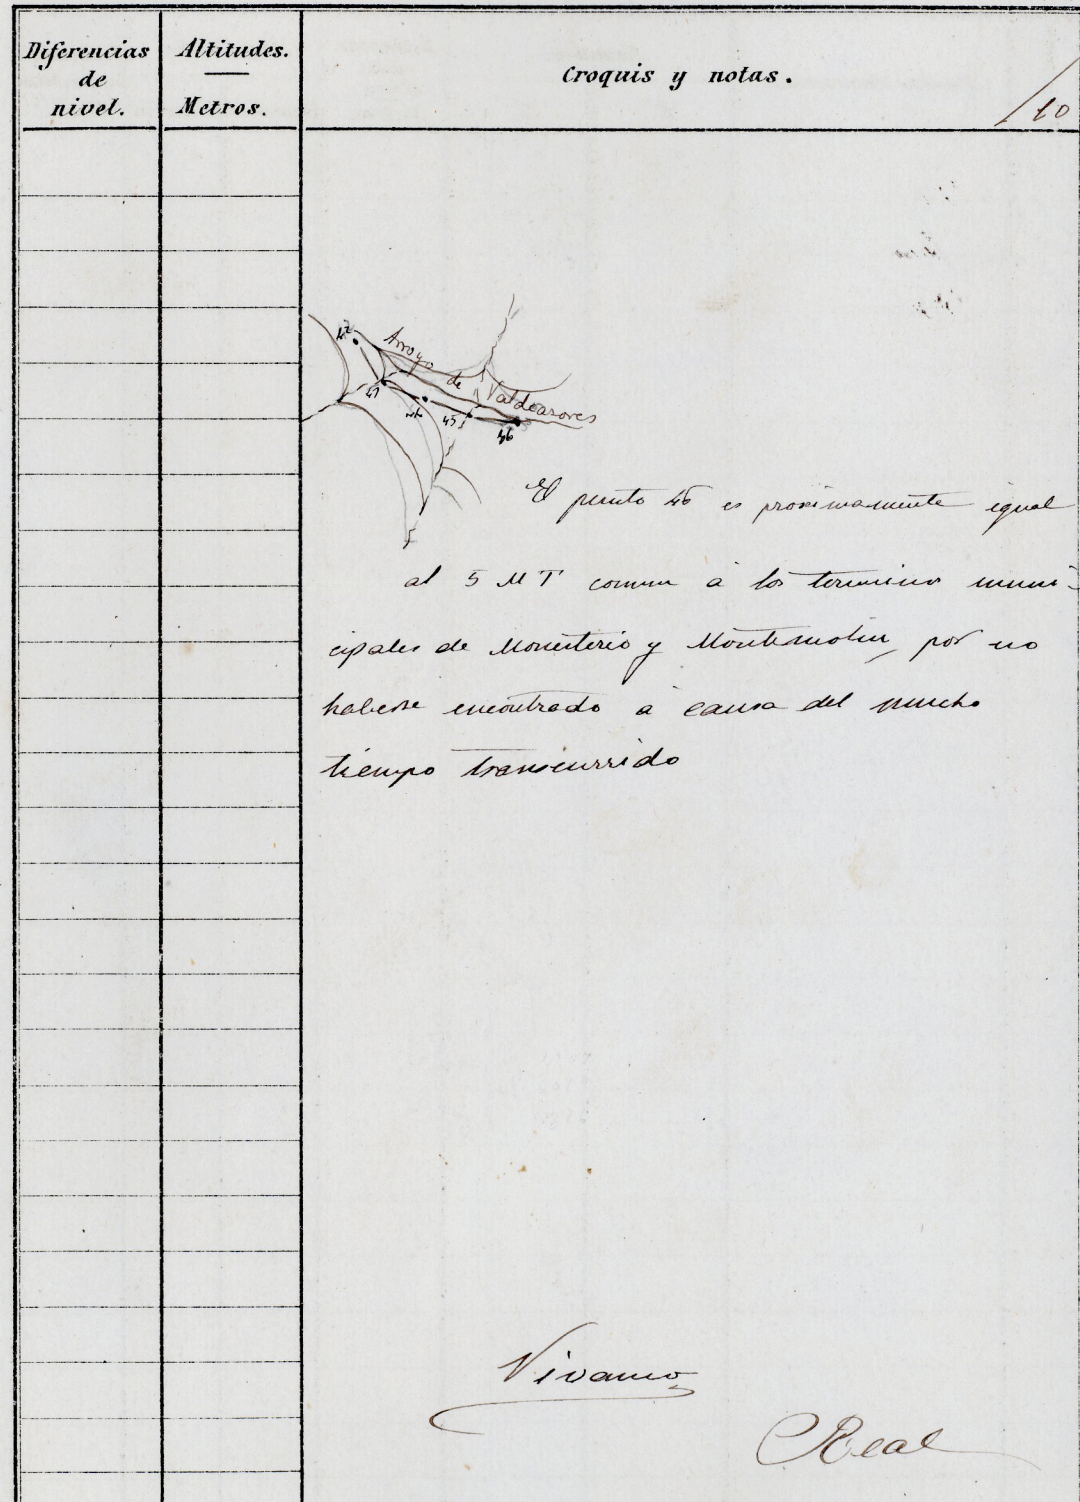 Diferencias
de
nivel.
Altitudes.
Metros.
Croquis y notas.
10
Arroyo de Valdoarores
47
45
46
El punto 46 es proximamente igual
al 5 M T comun á los terminos muni-
cipales de Monesterio y Montemolin, por no
haberse encontrado á causa del mucho
tiempo transcurrido
Vivanco
Real